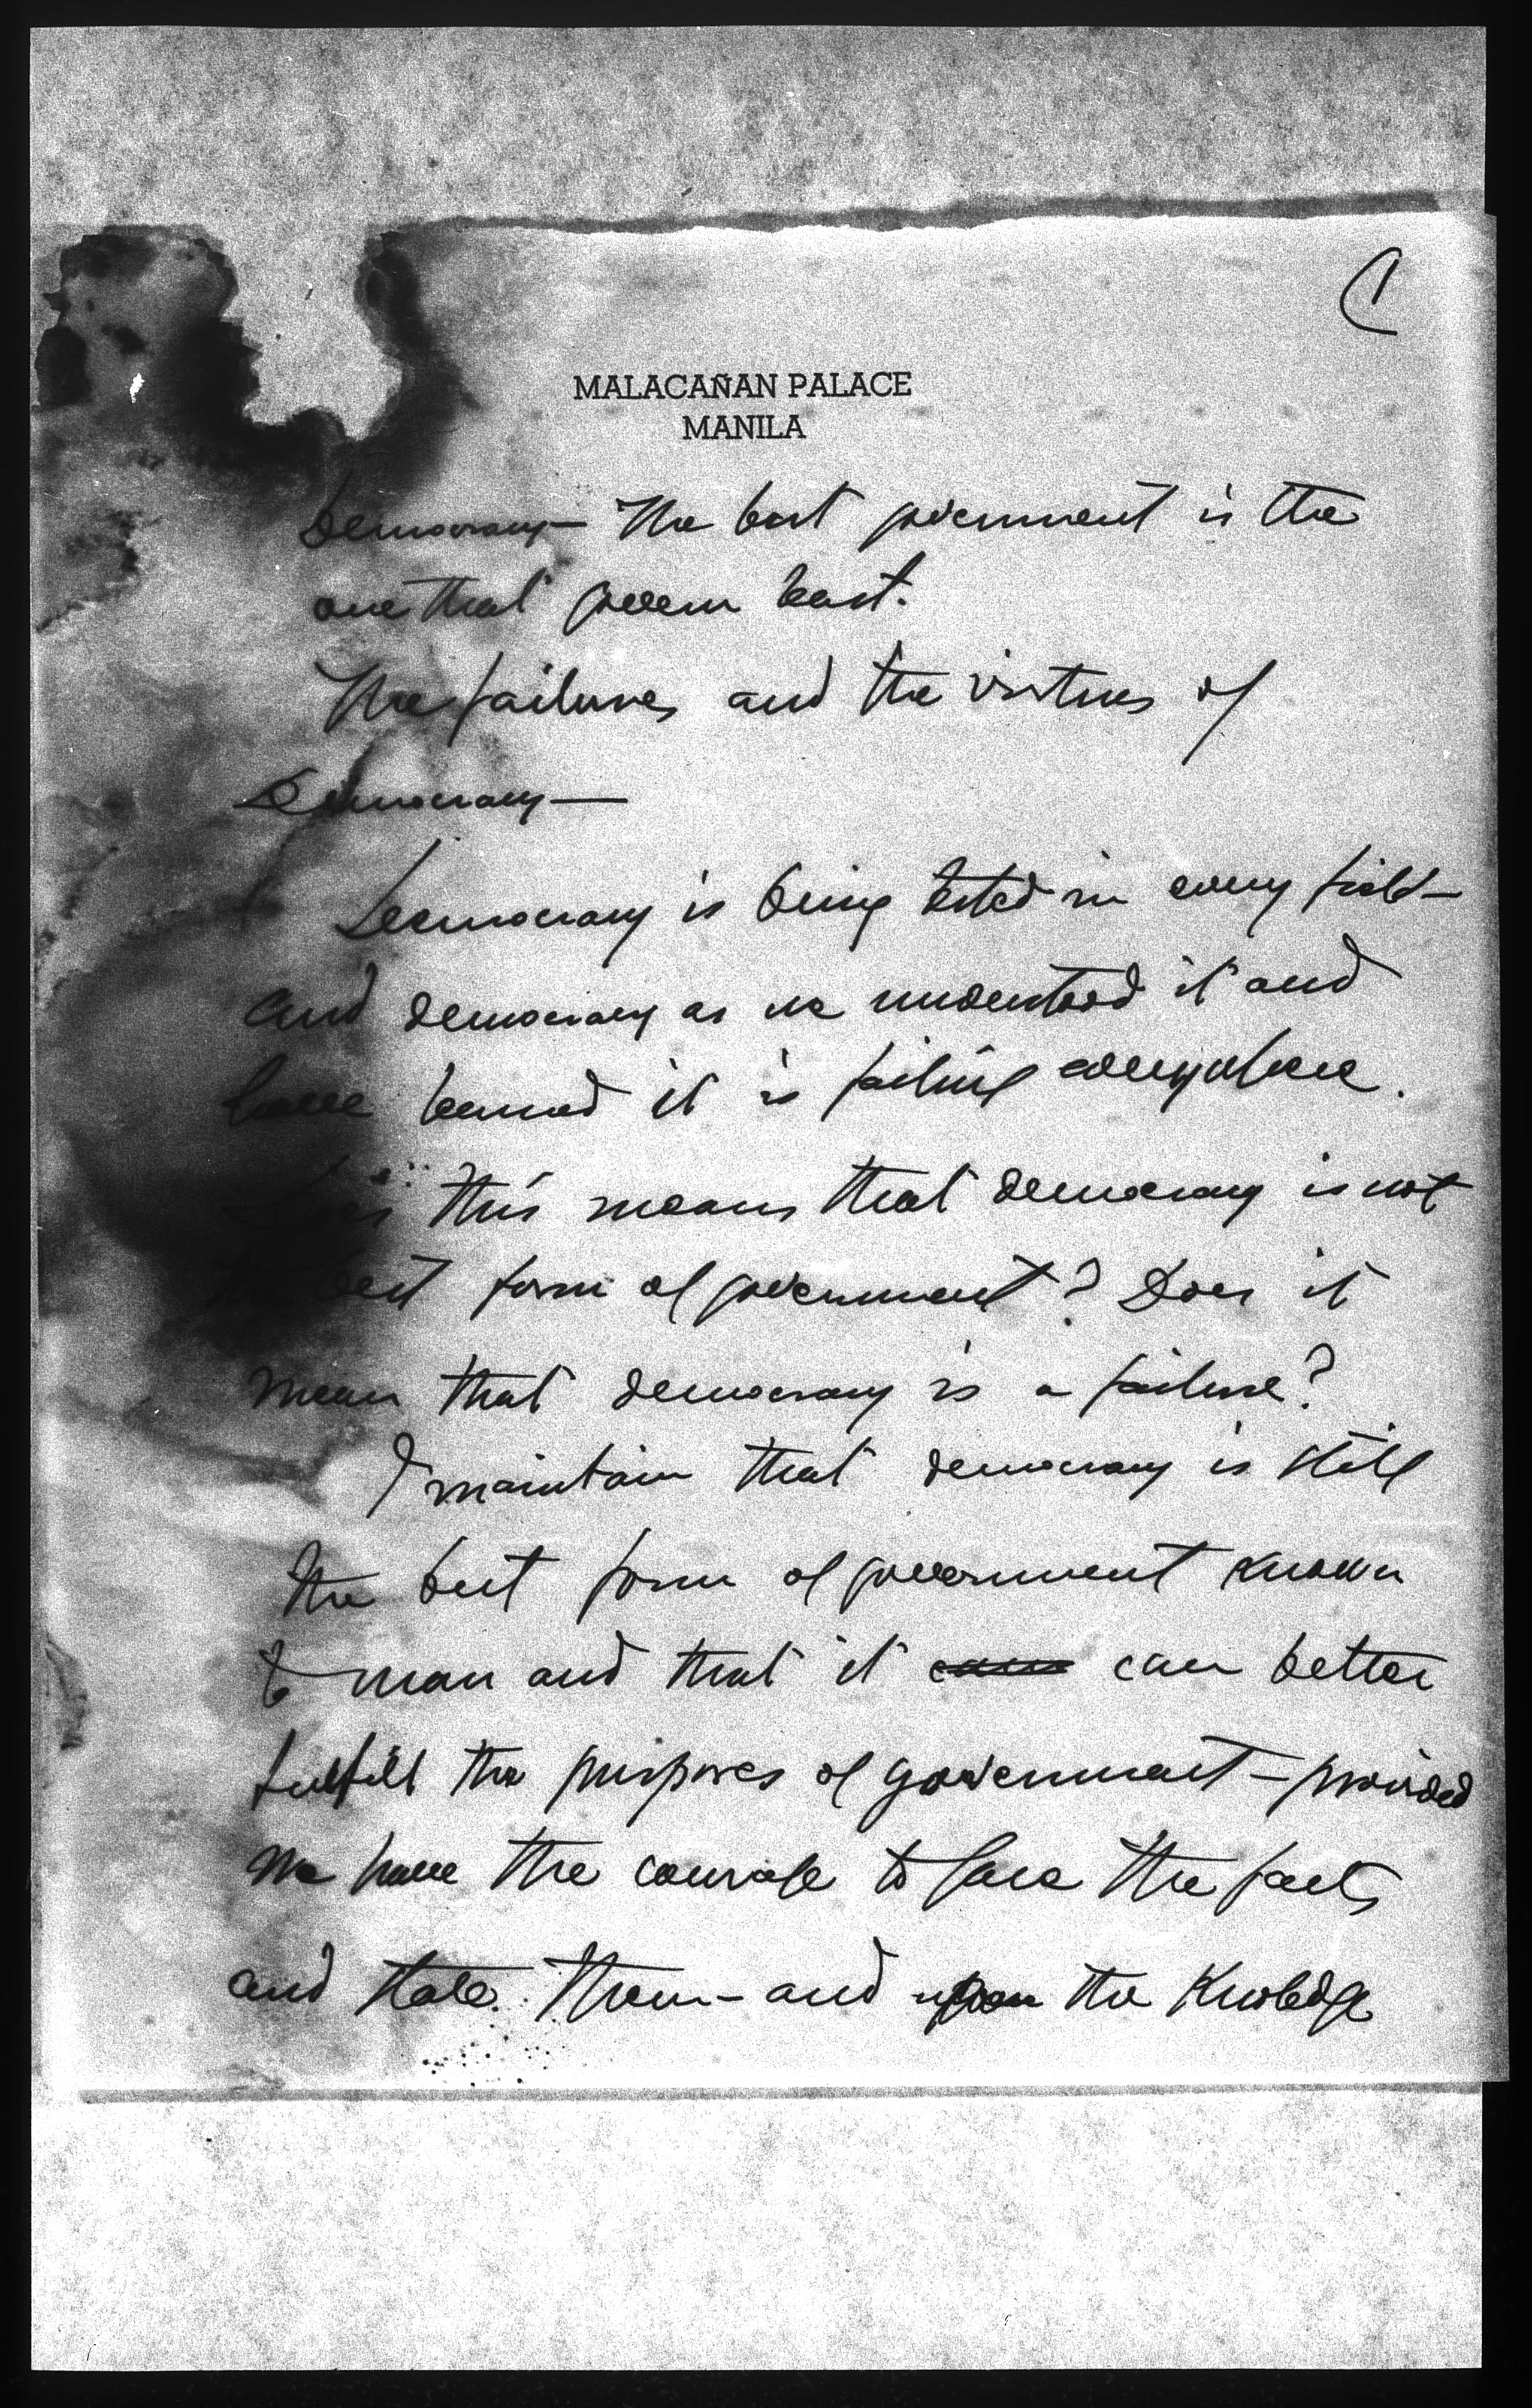 1
MALACAÑAN PALACE
MANILA
Democracy — The best government is the
one that govern least.
The failures and the virtues of
Democracy —
Democracy is being tested in every field —
and democracy as we understood it and
have learned it is failing everywhere.
Does this means that democracy is not
the best form of government? Does it
mean that democracy is a failure?
I maintain that democracy is still
the best form of government known
to man and that it can better
fulfill the purposes of government — provided
we have the courage to face the facts
and state them — and upon the Knowledge